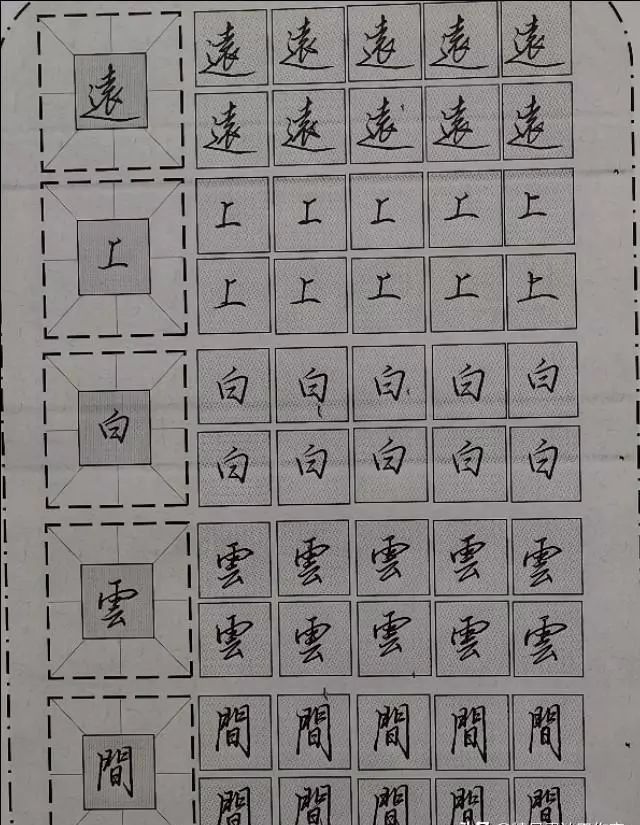 遠 遠 遠 遠 遠 遠
遠 遠 遠 遠 遠
上 上 上 上 上 上
上 上 上 上 上
白 白 白 白 白 白
白 白 白 白 白
雲 雲 雲 雲 雲 雲
雲 雲 雲 雲 雲
間 間 間 間 間 間
間 間 間 間 間